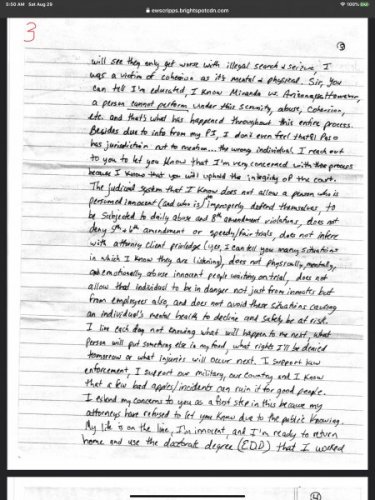 5:50 AM Sat Aug 29
100%
ewscripps.brightspotcdn.com
3
③
will see they only get worse with illegal search & seizure, I
was a victim of cohersion as it's mental & physical. Sir, You
can tell I'm educated, I know Miranda vs. Arizona, However,
a person cannot perform under this scrunity, abuse, Cohersion,
etc. and that's what has happened throughout this entire process.
Besides due to info from my PI, I don't even feel that El Paso
has jurisdiction not to mention... the wrong individual. I reach out
to you to let you know that I'm very concerned with this process
because I know that you will uphold the integrity of the court.
The judicial system that I know does not allow a person who is
personed innocent (and who is) improperly defend themselves, to
be subjected to daily abuse and 8th amendment violations, does not
deny 5th & 6th amendment or speedy/fair trials, does not infere
with attorney client priviledge (yes, I can tell you many situations
in which I know they are listening), does not physically, mentally,
and emotionally abuse innocent people waiting on trial, does not
allow that individual to be in danger not just from inmates but
from employees also, and does not avoid these situations causing
an individual's mental health to decline and safety be at risk.
I live each day not knowing what will happen to me next, what
person will put something else in my food, what rights I'll be denied
tomorrow or what injuries will occur next. I support law
enforcement, I support our military, our country and I know
that a few bad apples/incidents can ruin it for good people.
I extend my concerns to you as a first step in this because my
attorneys have refused to let you know due to the public knowing.
My life is on the line, I'm innocent, and I'm ready to return
home and use the doctorate degree (EDD) that I worked
④